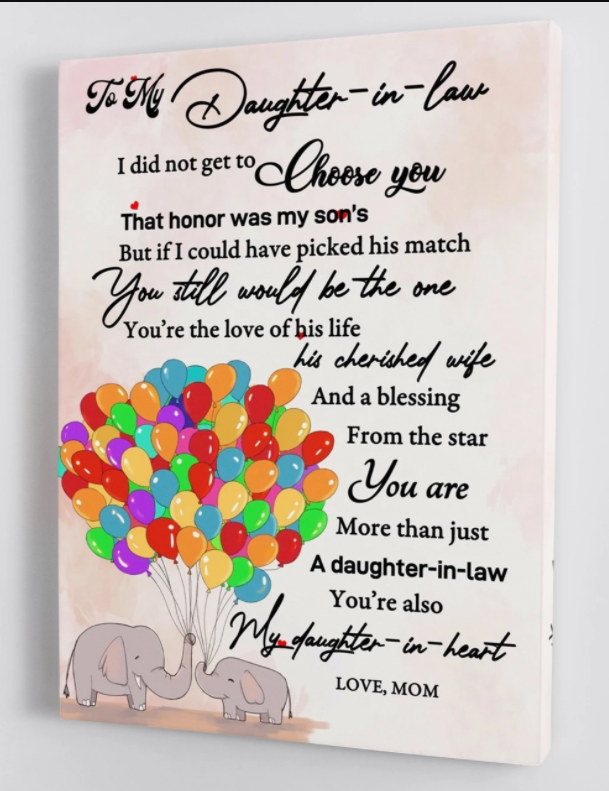 To My Daughter-in-law
I did not get to Choose you
That honor was my son's
But if I could have picked his match
You still would be the one
You're the love of his life
his cherished wife
And a blessing
From the star
You are
More than just
A daughter-in-law
You're also
My daughter-in-heart
LOVE, MOM